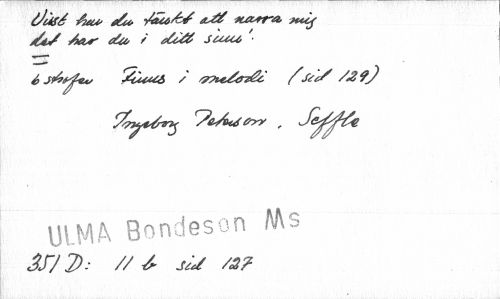 Visst har du tänkt att narra mig
det har du i ditt sinne!
6 strofer Finns i melodi (sid 129)
Ingeborg Peterson, Seffle
ULMA Bondeson Ms
351 D: 11 b sid 127